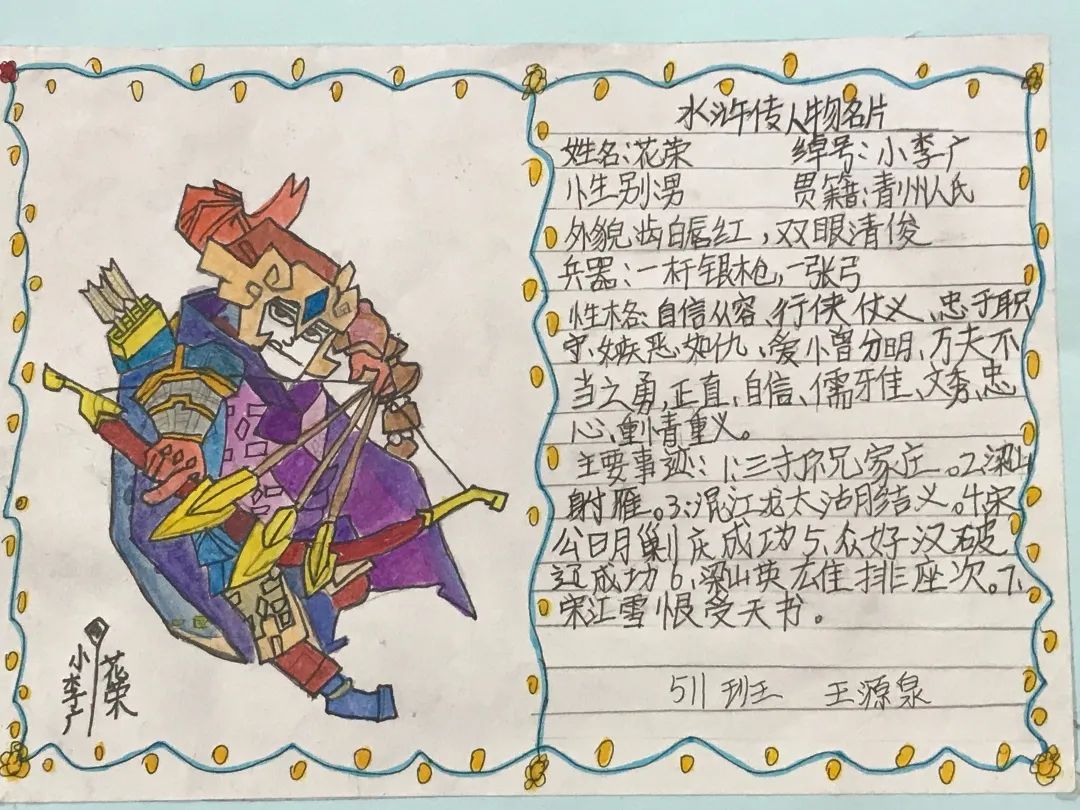 小李广
花荣
水浒传人物名片
姓名:花荣 绰号:小李广
性别:男 贯籍:青州人氏
外貌:齿白唇红,双眼清俊
兵器:一杆银枪,一张弓
性格:自信从容、行侠仗义、忠于职
守、嫉恶如仇、爱憎分明、万夫不
当之勇,正直、自信、儒雅佳、文秀、忠
心、重情重义。
主要事迹:1:三打祝家庄。2、梁山
射雁。3、混江龙太沽月结义。4、宋
公明剿 成功5、众好汉破
辽成功6、梁山英雄排座次。7、
宋江雪恨受天书。
511班 王源泉